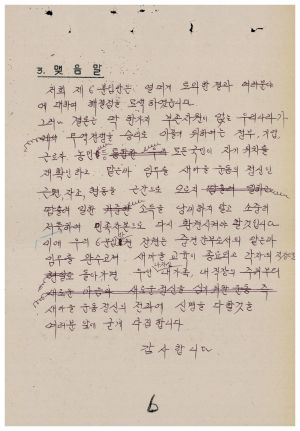 3. 맺음말
저희 제6분임반은 열띠게 토의한 결과 여러분대
에 대하여 해결점을 모색 하였습니다.
그러나 결론은 딱 한가지 부존자원이 없는 우리나라가
무역전쟁을 승리로 이끌기 위하여는 정부, 기업,
근로자 농민 모든 국민이 자기 위치를
재확인하고 맡은바 임무를 새마을 운동의 정신인
근면, 자조, 협동을 근간으로 오로지
일한 소득을 낭비하지 말고 소중히
저축하여 민족자본으로 다시 확전시켜야 할것입니다
이에 우리 6분임반 전원은 중견간부로서의 맡은바
임무를 완수하고 새마을 교육이 종료되고 각자의 직장으로
돌아가면 우선 나가족, 내 직장 주위부터
새로운 마음과 새로운 정신을 심기 위한 운동 즉
새마을 운동 정신의 전파에 신명을 다할것을
여러분 앞에 굳게 다짐합니다
감사합니다
6